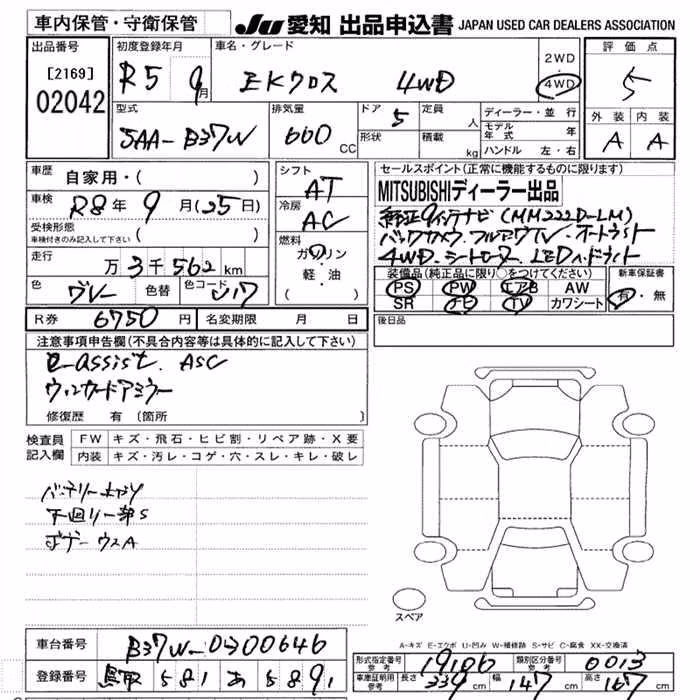 車内保管・守衛保管
JU 愛知 出品申込書 JAPAN USED CAR DEALERS ASSOCIATION
出品番号 初度登録年月 車名・グレード 評価点
[2169]
02042
R5 9月 EKクロス 4WD
2WD
4WD
5
型式 排気量 ドア 定員 ディーラー・並行 外装 内装
5AA-B37W 660 CC 5 人
形状 積載 kg
モデル年式 年
ハンドル 左・右
A A
車歴 自家用・( )
車検 R8年9月(25日)
受検形態
車検付きのみ記入して下さい ( )
走行 万3千562km
色 グレー 色替 色コード U17
シフト AT
冷房 AC
燃料
ガソリン
・
軽・油
( )
セールスポイント(正常に機能するものに限ります)
MITSUBISHIディーラー出品
純正9インチナビ(MM222D-LM)
バックカメラ.フルセグTV・オートライト
4WD.シートヒーター.LEDヘッドライト
装備品(純正品に限り○をつけてください) 新車保証書
PS PW エアB AW
SR ナビ TV カワシート
有・無
R券 6750円 名変期限 月 日
後日品
注意事項申告欄(不具合内容等は具体的に記入して下さい)
e-assist. ASC
ウィンカードアミラー
修復歴 有 〔箇所
検査員
記入欄
FW キズ・飛石・ヒビ割・リペア跡・X要
内装 キズ・汚レ・コゲ・穴・スレ・キレ・破レ
下廻り一部S
ボデーウスA
スペア
A-キズ E-エクボ U-凹み W-補修跡 S-サビ C-腐食 XX-交換済
車台番号 B37W-0300646
登録番号 鳥取 581 あ 5891
形式指定番号 参考 19106 類別区分番号 参考 0013
車庫証明用 参考 長さ 339cm 幅 147cm 高さ 167cm